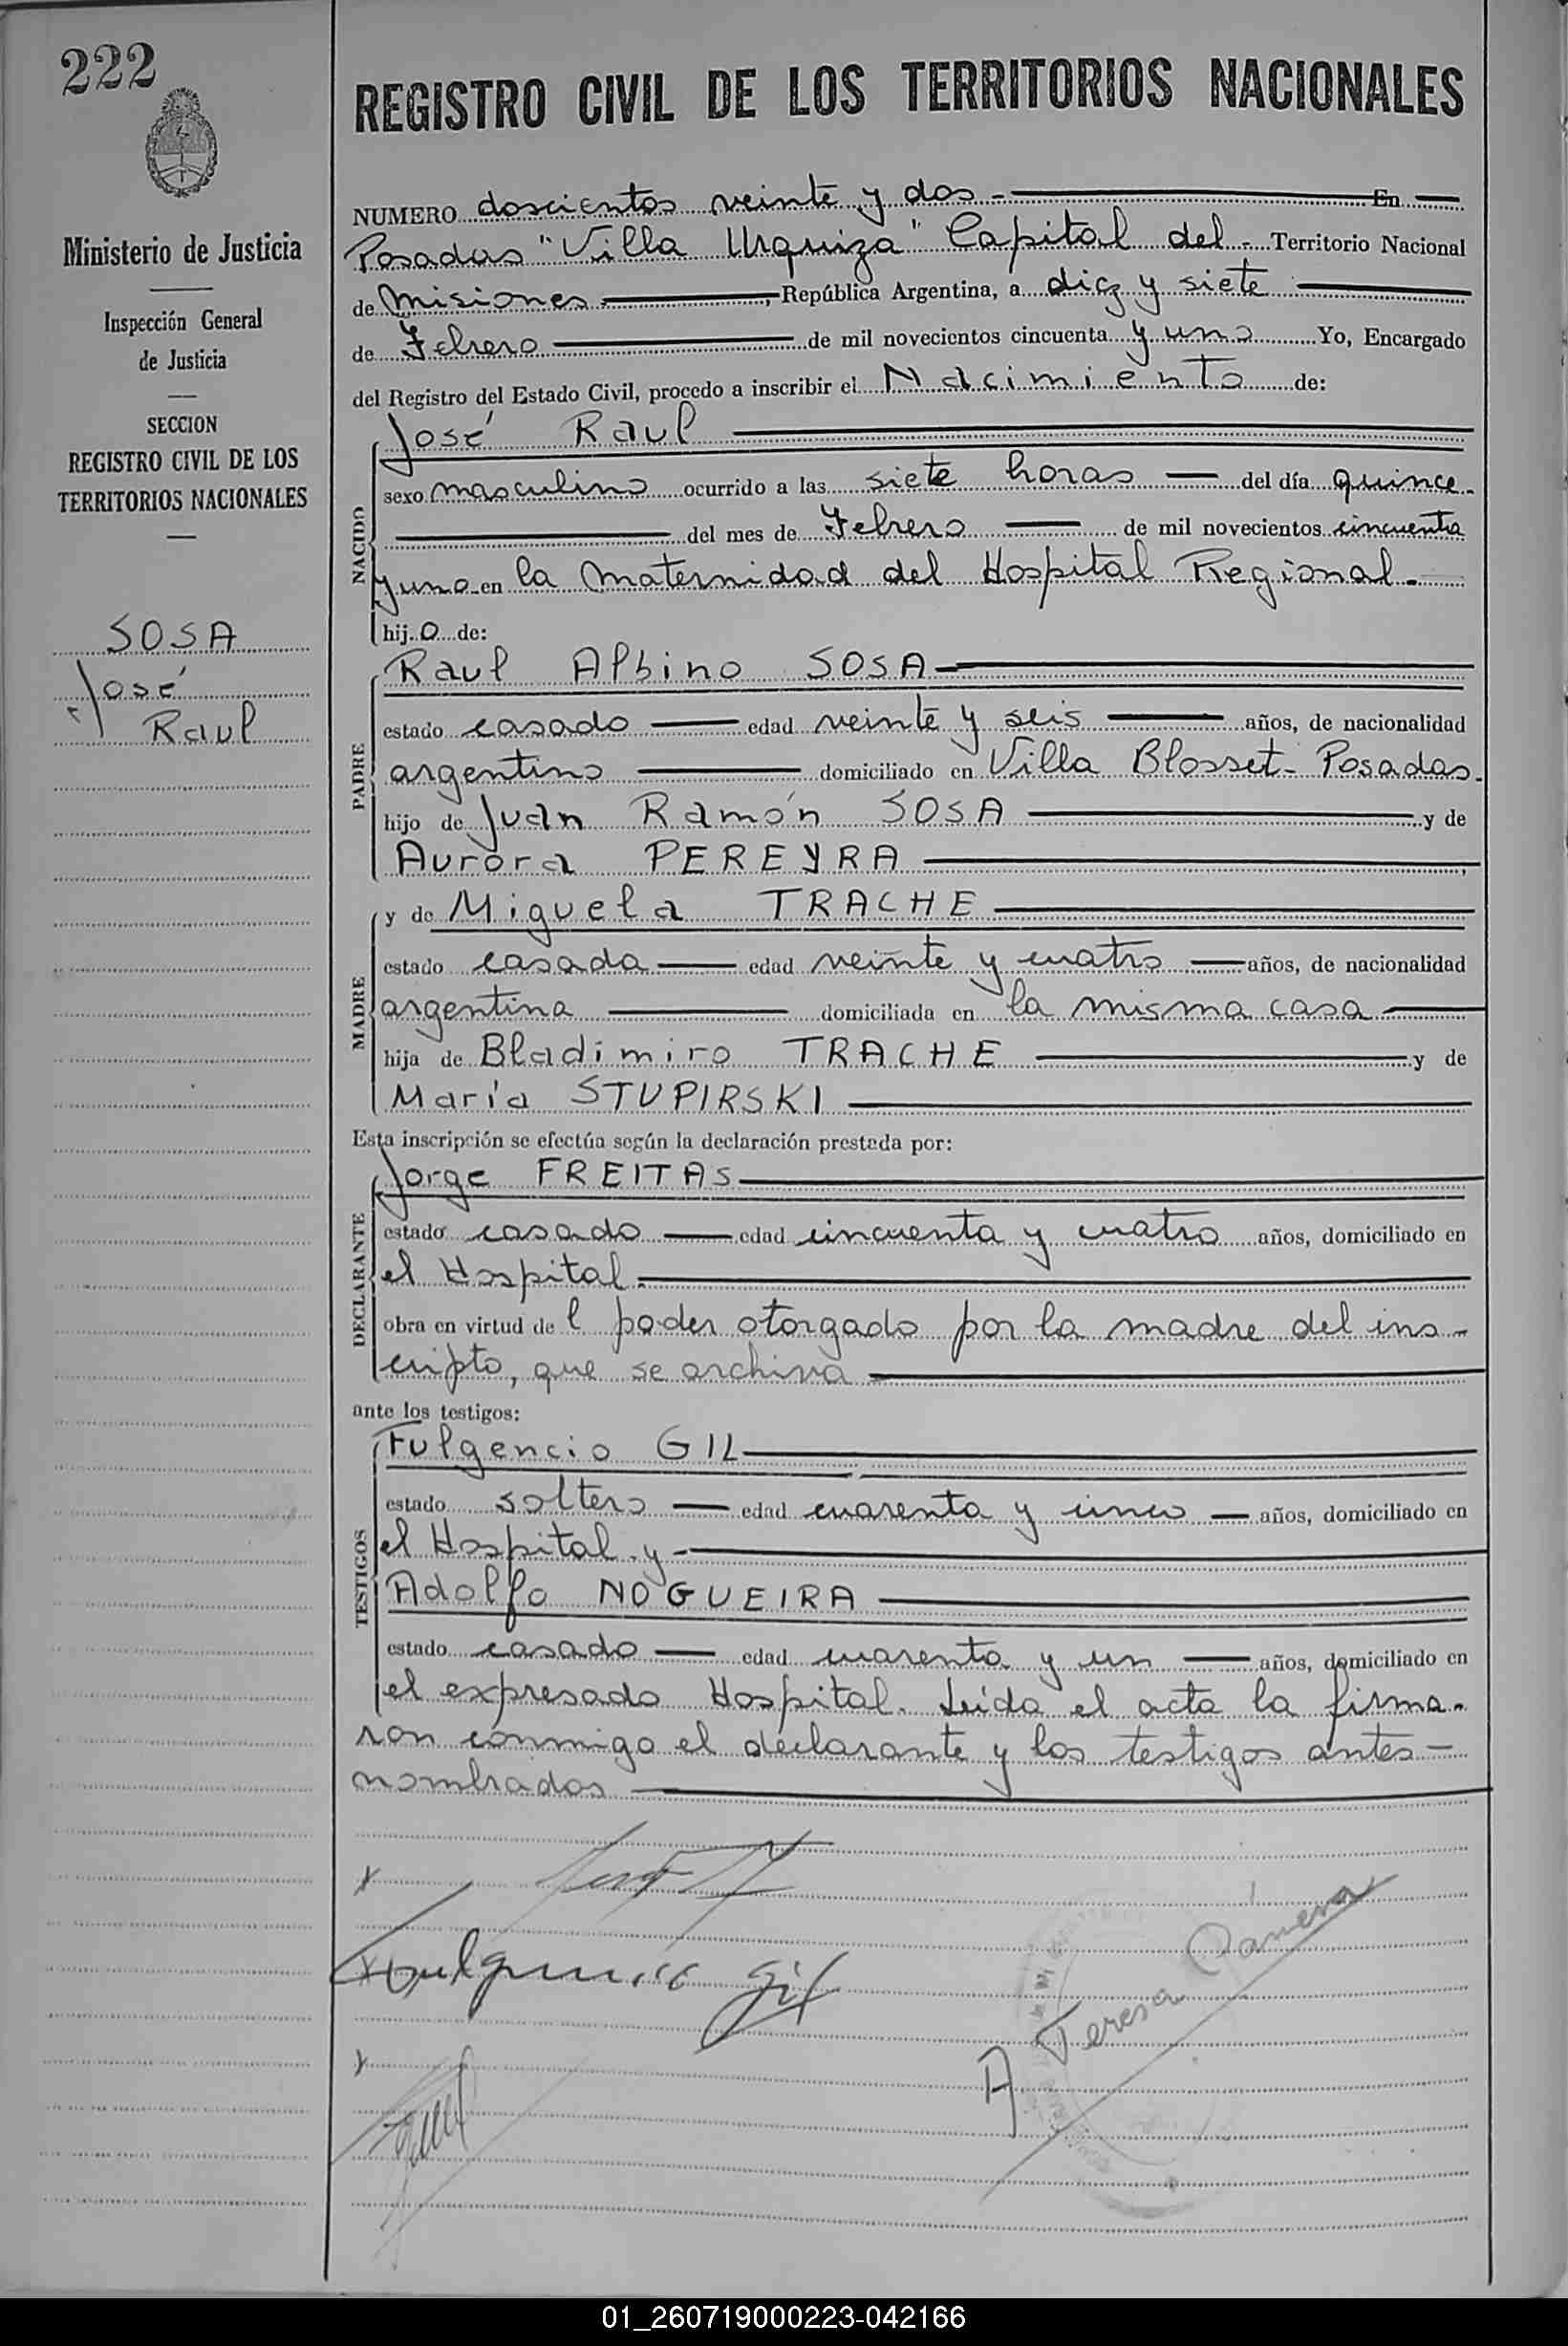 222
Ministerio de Justicia
Inspección General
de Justicia
SECCION
REGISTRO CIVIL DE LOS
TERRITORIOS NACIONALES
SOSA
José
Raul
REGISTRO CIVIL DE LOS TERRITORIOS NACIONALES
NUMERO doscientos veinte y dos - En
Posadas "Villa Urquiza" Capital del - Territorio Nacional
de Misiones, República Argentina, a diez y siete
de Febrero de mil novecientos cincuenta y uno Yo, Encargado
del Registro del Estado Civil, procedo a inscribir el Nacimiento de:
NACIDO
José Raul
sexo masculino ocurrido a las siete horas del día quince
del mes de Febrero de mil novecientos cincuenta
y uno en la Maternidad del Hospital Regional.
hijo de:
PADRE
Raul Albino SOSA
estado casado edad veinte y seis años, de nacionalidad
argentino domiciliado en Villa Blosset - Posadas.
hijo de Juan Ramón SOSA y de
Aurora PEREYRA
MADRE
y de Miguela TRACHE
estado casada edad veinte y cuatro años, de nacionalidad
argentina domiciliada en la misma casa
hija de Bladimiro TRACHE y de
María STUPIRSKI
Esta inscripción se efectúa según la declaración prestada por:
DECLARANTE
Jorge FREITAS
estado casado edad cincuenta y cuatro años, domiciliado en
el Hospital.
obra en virtud del poder otorgado por la madre del ins-
cripto, que se archiva
ante los testigos:
TESTIGOS
Fulgencio GIL
estado soltero edad cuarenta y cinco años, domiciliado en
el Hospital y
Adolfo NOGUEIRA
estado casado edad cuarenta y un años, domiciliado en
el expresado Hospital. Leida el acta la firma-
ron conmigo el declarante y los testigos antes-
nombrados
Fulgencio Gil
A Teresa
01_260719000223-042166